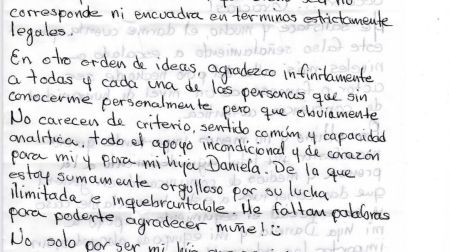 corresponde ni encuadra en términos estrictamente
legales.
En otro orden de ideas, agradezco infinitamente
a todas y cada una de las personas que sin
conocerme personalmente pero que obviamente
No carecen de criterio, sentido común y capacidad
analítica, todo el apoyo incondicional y de corazón
para mi y para mi hija Daniela. De la que
estoy sumamente orgulloso por su lucha
ilimitada e inquebrantable. Me faltan palabras
para poderte agradecer muñe!
No solo por ser mi hija